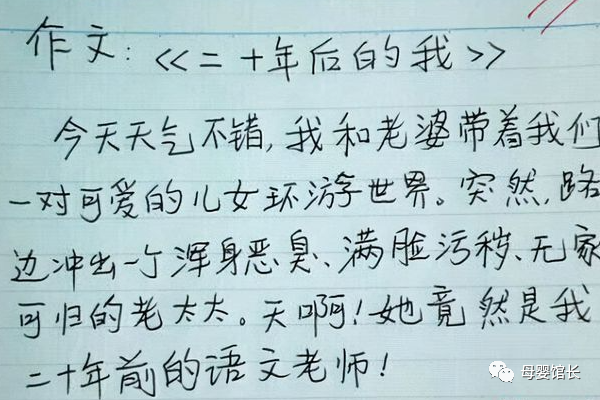 作文：《二十年后的我》
今天天气不错,我和老婆带着我们
一对可爱的儿女环游世界。突然,路
边冲出一个浑身恶臭、满脸污秽、无家
可归的老太太。天啊!她竟然是我
二十年前的语文老师!
母婴馆长